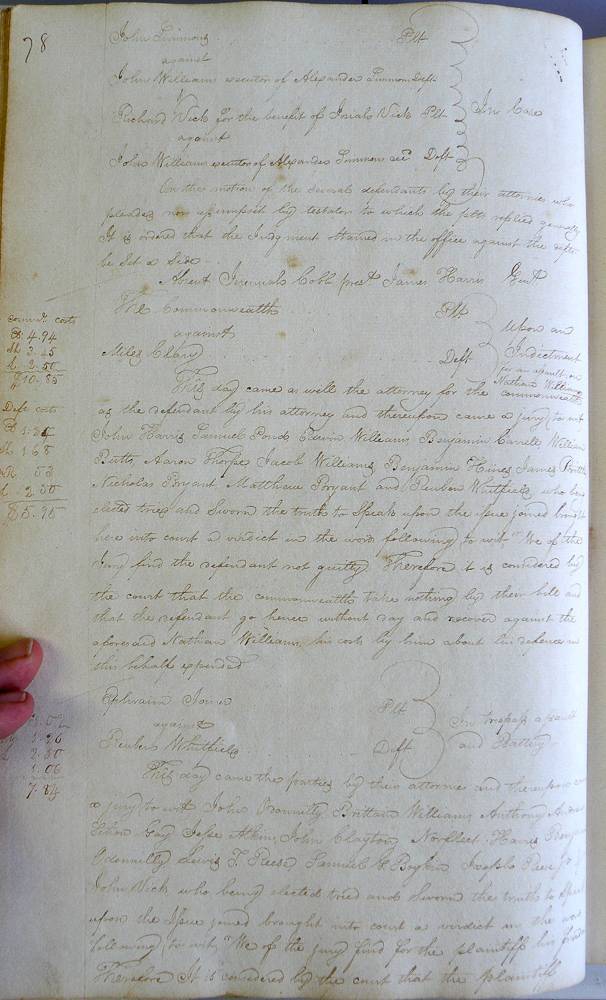 78
John Simmons Plt
against
John William executor of Alexander Simmons Deft
Richard Vick for the benefit of Josiah Vick Plt In Case
against
John Williams executor of Alexander Simmons decd Deft
On the motion of the several defendants by their attornie who
pleaded non assumpsit by testator to which the plts replied generally
It is ordered that the Judgment obtained in the office against the
be Set a Side
Absent Jeremiah Cobb prest James Harris Gent
The Commonwealth Plt
against
Miles Clary Deft
Upon an
Indictment
for an assault on
Nathan Williams
commth costs
4.94
2.45
2.50
10.85
This day came as well the attorney for the commonwealth
as the defendant by his attorney and thereupon came a jury to wit
John Harris Samuel Pond Edwin Williams, Benjamin Carrell, William
Butts, Aaron Thorpe Jacob Williams, Benjamin Hines James
Nicholas Bryant Matthew Bryant and Reubon Whitfield, who being
elected tried and Sworn the truth to Speak upon the issue joined brought
here into court a verdict in the words following to wit "We of the
Jury find the defendant not guilty Therefore it is considered by
the court that the commonwealth take nothing by their bill and
that the defendant go hence without day and recover against the
aforesaid Nathan Williams, his costs by him about his defence in
this behalf expended
Defts costs
1.68
53
2.50
$5.95
Ephraim Jones Plt
against
Reuben Whitfield Deft
In trespass assault
and Battery
2.50
7.84
This day came the parties by their attornie and thereupon came
a jury to wit John Britain Williams Anthony
Gay Jesse Atkins, John Clayton, Norfleet Harris
Lewis T. Reese, Samuel Boykin
John Vick who being elected tried and Sworn the truth to Speak
upon the Issue joined brought into court a verdict in the words
following to wit "We of the jury find for the plaintiff
Therefore It is considered by the court that the plaintiff